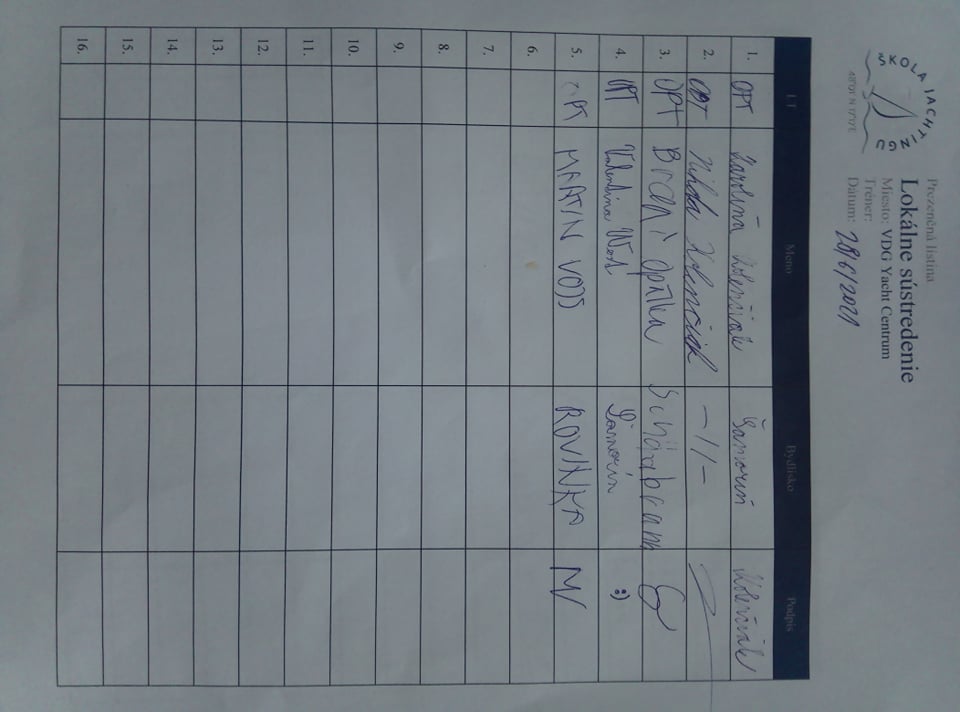 ŠKOLA JACHTINGU
Prezenčná listina
Lokálne sústredenie
Miesto: VDG Yacht Centrum
Tréner:
Dátum: 28/6/2021
LT Meno Bydlisko Podpis
1. OPT Karolína Kolenčiak Šamorín Kolenčiak
2. OPT Kolenčiak -//-
3. OPT
4. OPT Valentina Šamorín :)
5. OPT MARTIN VOJS ROVINKA MV
6.
7.
8.
9.
10.
11.
12.
13.
14.
15.
16.